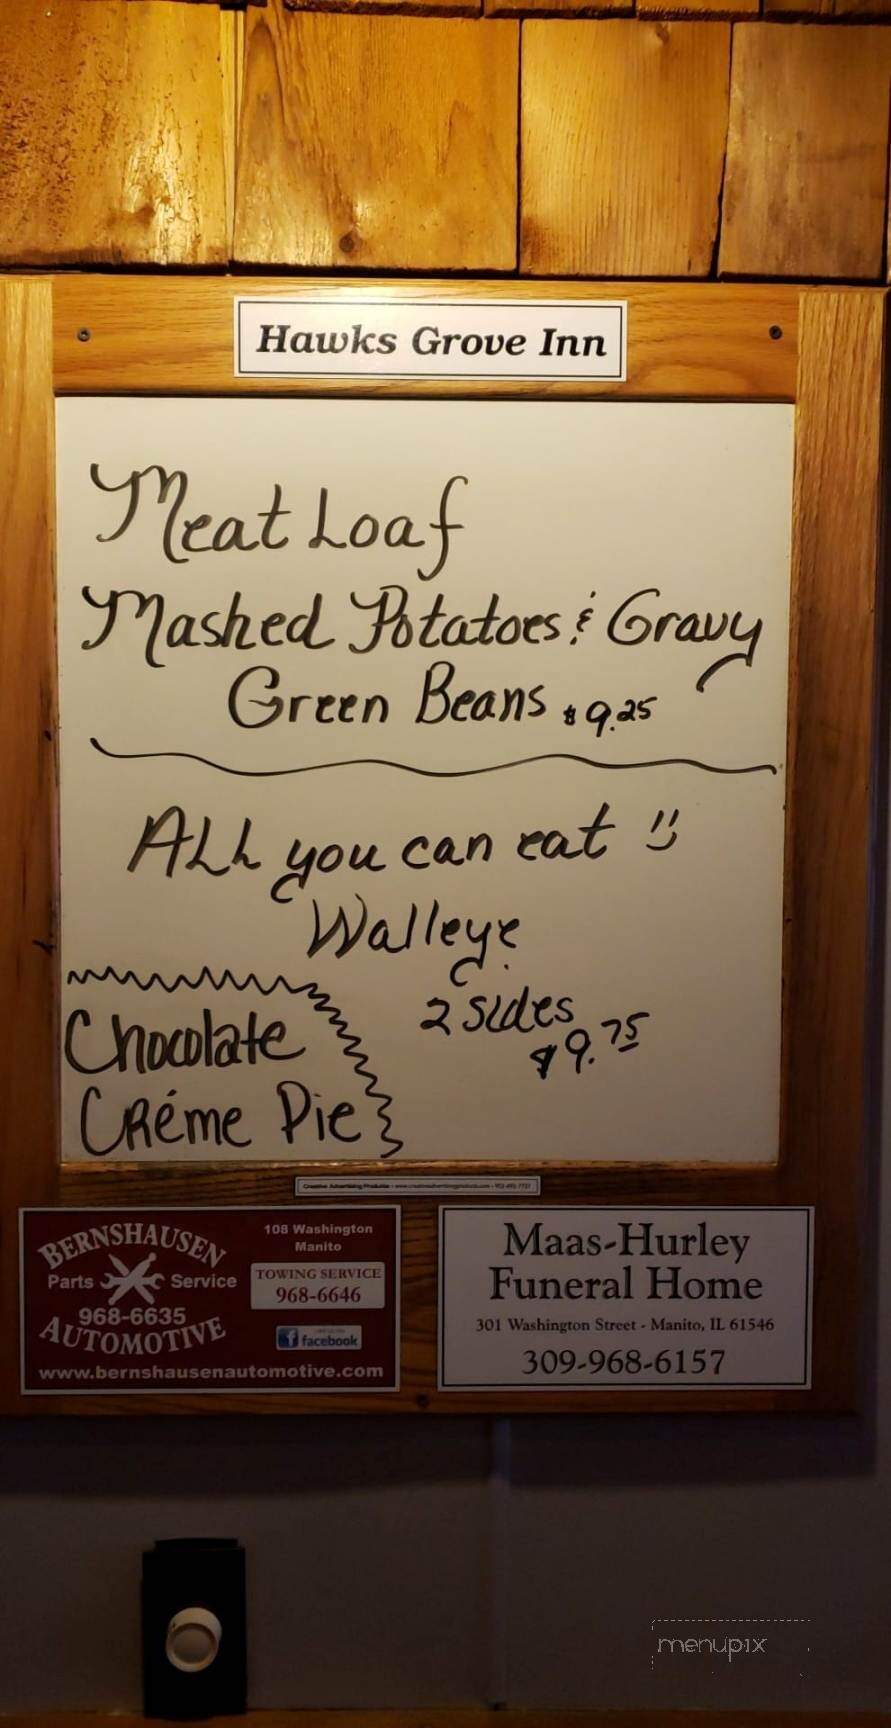 Hawks Grove Inn
Meat Loaf
Mashed Potatoes & Gravy
Green Beans $9.25
ALL you can eat
Walleye
2 sides
$9.75
Chocolate
Créme Pie
BERNSHAUSEN
Parts Service
968-6635
AUTOMOTIVE
108 Washington
Manito
TOWING SERVICE
968-6646
facebook
www.bernshausenautomotive.com
Maas-Hurley
Funeral Home
301 Washington Street - Manito, IL 61546
309-968-6157
menupix